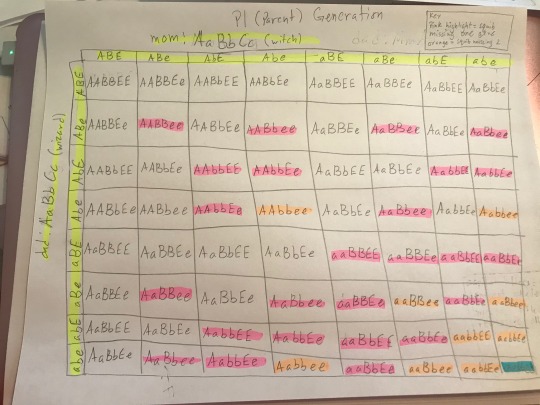 P1 (Parent) Generation
Key
Pink highlight = squib
missing one gene
orange = squib missing 2
mom: AaBbEe (witch)
ABE ABe AbE Abe aBE aBe abE abe
dad: AaBbEe (wizard)
ABE AABBEE AABBEe AABbEE AABbEe AaBBEE AaBBEe AaBbEE AaBbEe
ABe AABBEe AABBee AABbEe AABbee AaBBEe AaBBee AaBbEe AaBbee
AbE AABbEE AABbEe AAbbEE AAbbEe AaBbEE AaBbEe AabbEE AabbEe
Abe AABbEe AABbee AAbbEe AAbbee AaBbEe AaBbee AabbEe Aabbee
aBE AaBBEE AaBBEe AaBbEE AaBbEe aaBBEE aaBBEe aaBbEE aaBbEe
aBe AaBBEe AaBBee AaBbEe AaBbee aaBBEe aaBBee aaBbEe aaBbee
abE AaBbEE AaBbEe AabbEE AabbEe aaBbEE aaBbEe aabbEE aabbEe
abe AaBbEe AaBbee AabbEe Aabbee aaBbEe aaBbee aabbEe